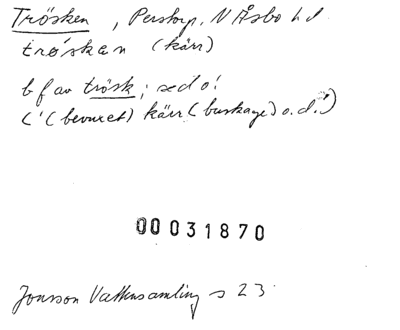 Trösken, Perstorp, N Åsbo hd
trǿsken (kärr)
b f av trösk; se d o!
('(bevuxet) kärr (buskage) o.d.')
00031870
Jonsson Vattensamling s 23